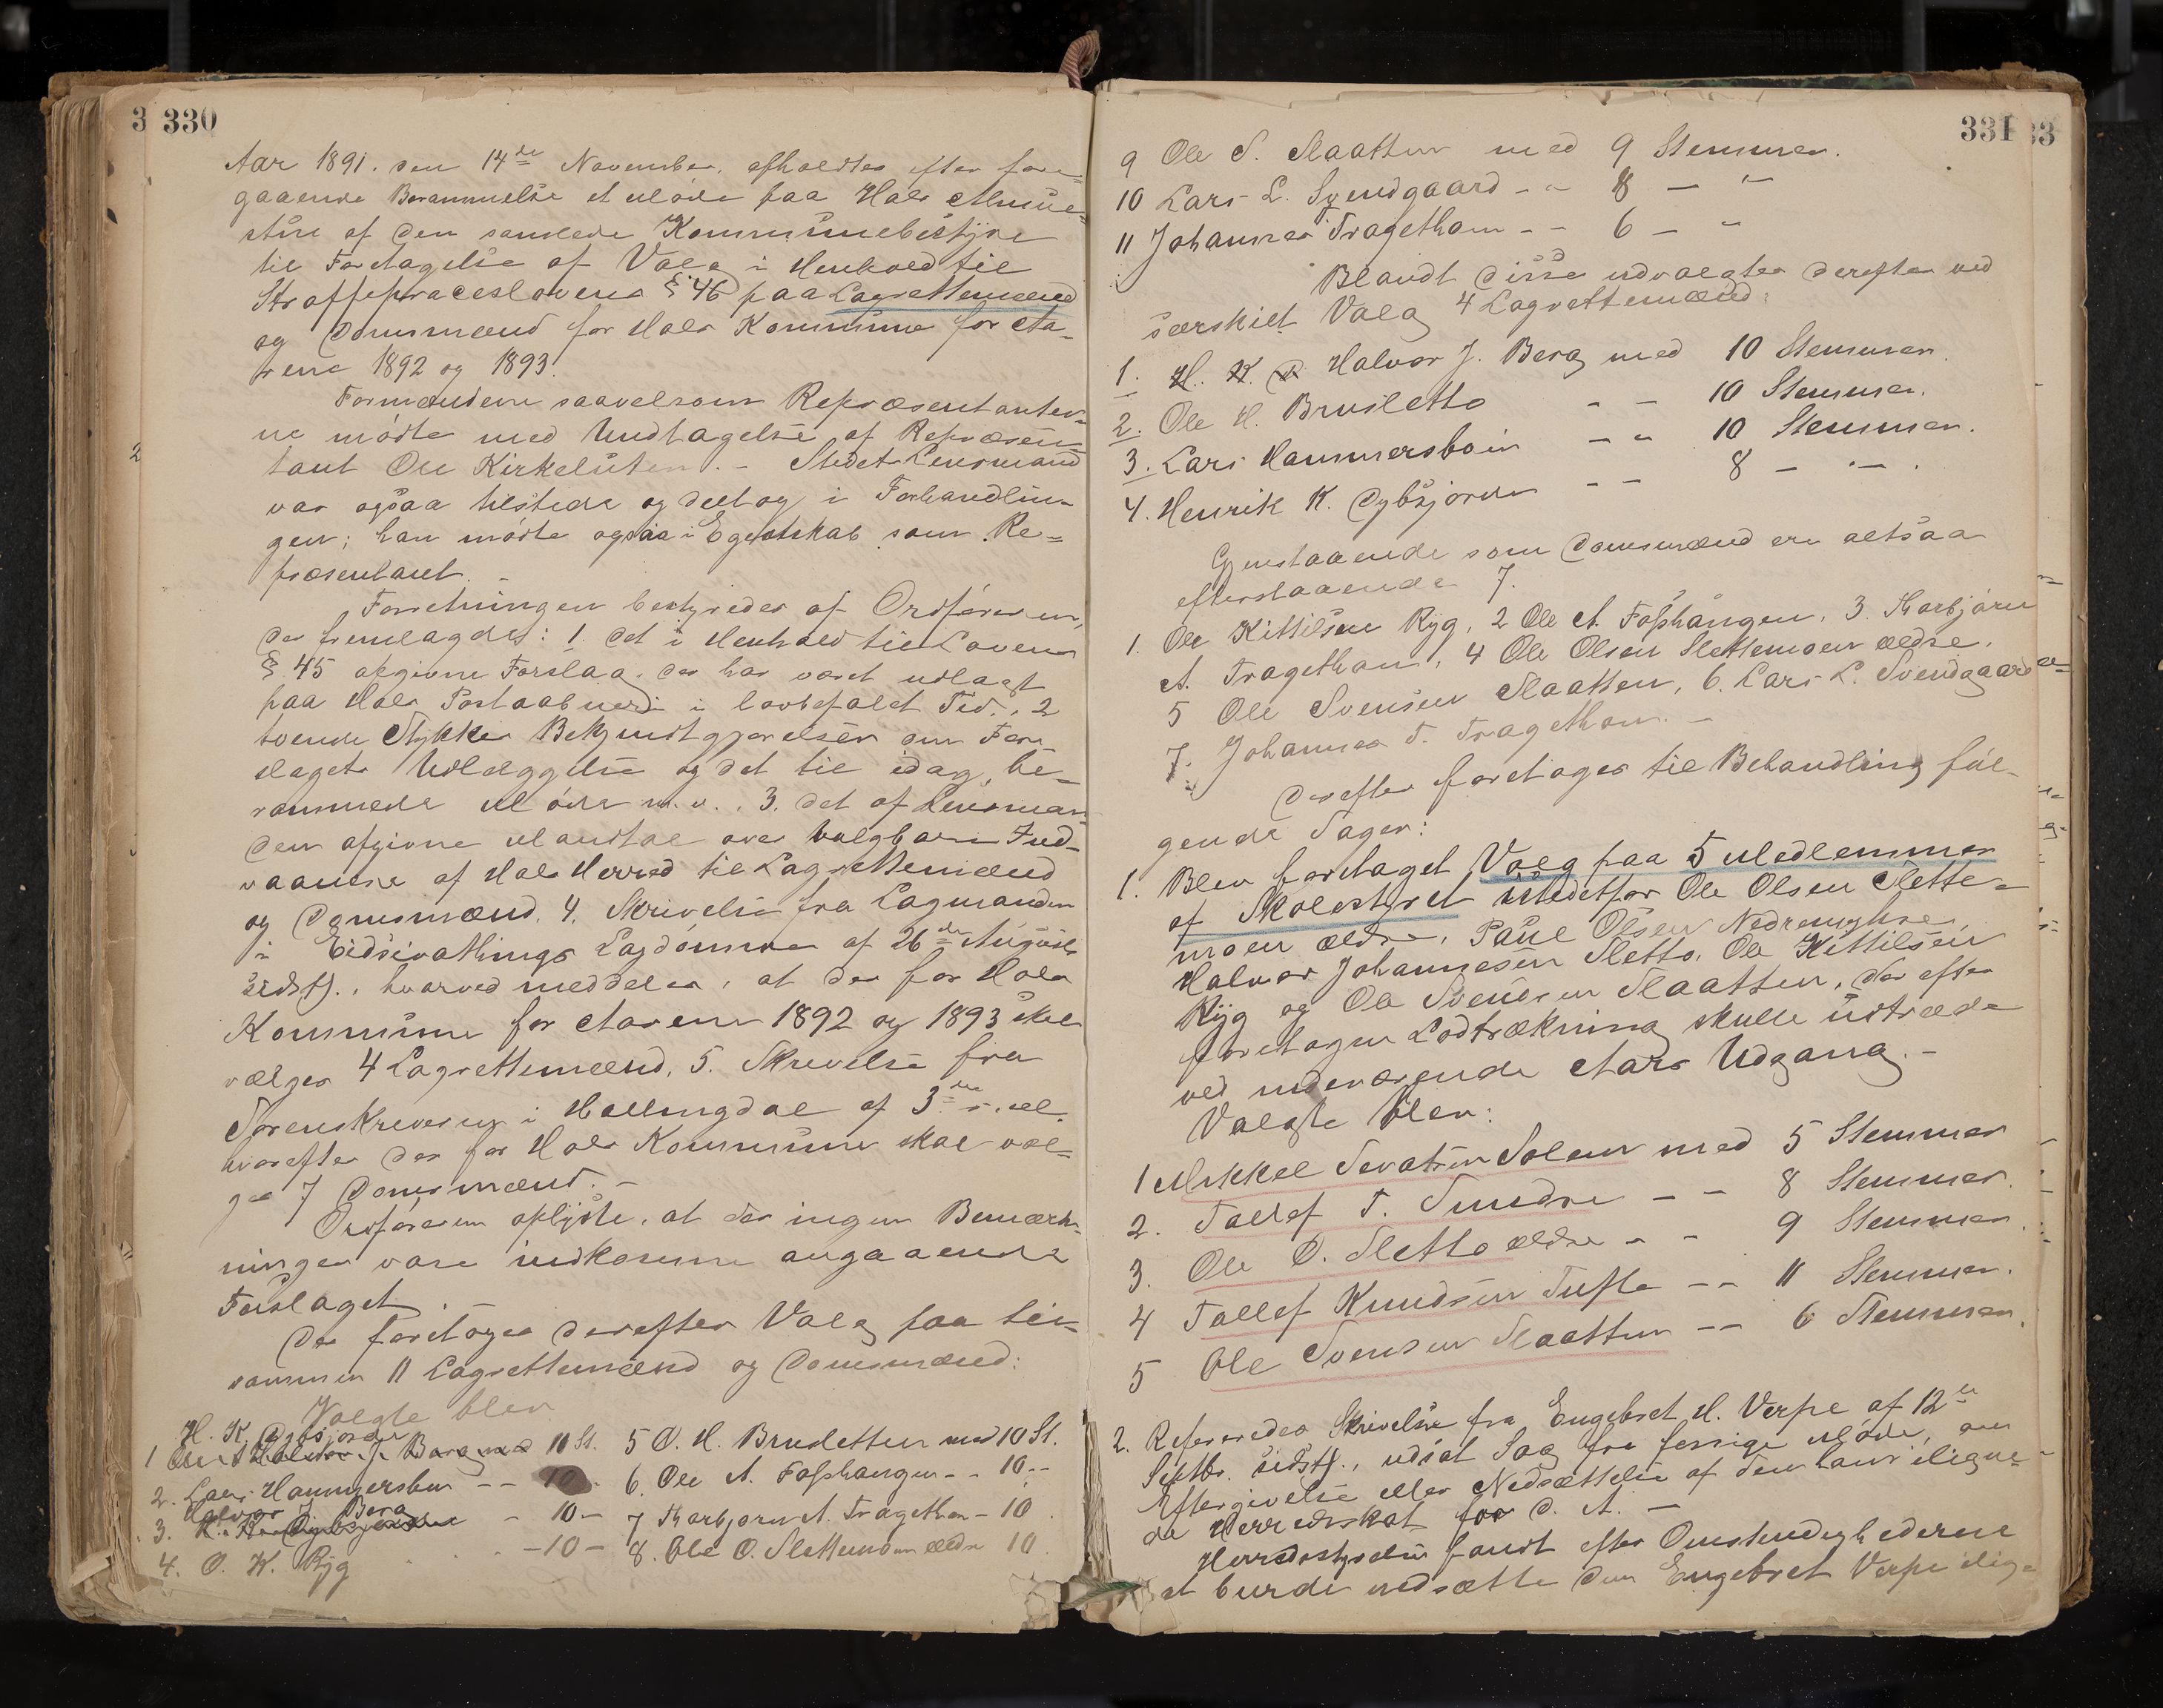 330
Aar 1891. den 14de November, afholdtes efter fore-
gaaende Berammelse et Møde paa Hols Almue-
stue af den samlede Kommunebestyre
til Foretagelse af Valg i Henhold til
Straffeproceslovens § 46 paa Lagrettemænd
og Domsmænd for Hols Kommune for Aa-
rene 1892 og 1893.
Formændene saavelsom Repræsentanter-
ne mødte med Undtagelse af Repræsen-
tant Ole Kirkeluten. - Stedets Lensmand
var ogsaa tilstede og deltog i Forhandlin-
gen; han mødte ogsaa i Egenskab som Re-
præsentant. -
Forretningen bestyredes af Ordføreren,
der fremlagde: 1. det i Henhold til Lovens
§ 45 afgivne Forslag, der har været udlagt
paa Hols Postaabneri i lovbefalet Tid., 2
tvende Stykker Bekjendtgjørelser om For-
slagets Udlæggelse og det til idag be-
rammede Møde m. v., 3. det af Lensman-
den afgivne Mandtal over valgbare Ind-
vaanere af Hols Herred til Lagrettemænd
og Domsmænd, 4. Skrivelse fra Lagmanden
i Eidsivathings Lagdømme af 26de August
sidstl., hvorved meddeles, at der for Hols
Kommune for Aarene 1892 og 1893 skal
vælges 4 Lagrettemænd, 5. Skrivelse fra
Sorenskriveren i Hallingdal af 3die s. M.
hvorefter der for Hols Kommune skal væl-
ges 7 Domsmænd. -
Ordføreren oplyste, at der ingen Bemærk-
ninger vare indkomne angaaende
Forslaget. -
Der foretoges derefter Valg paa til-
sammen 11 Lagrettemænd og Domsmænd:
Valgte blev
H. K. Dybsjorder
1 Halvor J. Berg med 11 St. 5 O. H. Brusletten med 10 St.
2. Lars Hammersbøen - - 10 - 6. Ole A. Fosshaugen - - 10 --
Halvor J. Berg
3. - 10 - 7 Thorbjørn A. Tragethon - 10
4. O. K. Ryg - 10 - 8. Ole O. Slettemoen ældre 10
331
9 Ole S. Slaatten med 9 Stemmer.
10 Lars L. Svendgaard - - 8 - "
11 Johannes T. Tragethon - - 6 - "
Blandt disse udvalgtes derefter ved
særskilt Valg 4 Lagrettemænd:
1. H. K. D. Halvor J. Berg med 10 Stemmer.
2. Ole H. Brusletto - - 10 Stemmer.
3. Lars Hammersbøin - - 10 Stemmer.
4. Henrik K. Dybsjorder - - 8 - " - .
Gjenstaaende som Domsmænd er altsaa
efterstaaende 7.
1. Ole Kittilsen Ryg, 2 Ole A. Fosshaugen, 3. Thorbjørn
A. Tragethon, 4 Ole Olsen Slettemoen ældre,
5 Ole Svensen Slaatten, 6. Lars L. Svendgaard
7. Johannes T. Tragethon. -
Derefter foretoges til Behandling føl-
gende Sager:
1. Blev foretaget Valg paa 5 Medlemmer
af Skolestyret istedetfor Ole Olsen Slette-
moen ældre, Paul Olsen Nedremyhre,
Halvor Johannesen Sletto, Ole Kittilsen
Ryg og Ole Svendsen Slaatten, der efter
foretagen Lodtrækning skulle udtræde
ved indeværende Aars Udgang. -
Valgte blev:
1 Mikkel Sevatsen Solem med 5 Stemmer
2. Tollef T. Sundre - - 8 Stemmer.
3. Ole O. Sletto ældre - - 9 Stemmer.
4 Tollef Knudsen Tufte - - 11 Stemmer.
5 Ole Svensen Slaatten - - 6 Stemmer.
2. Refereredes Skrivelse fra Engebret H. Verpe af 12te
Septbr. sidstl., udsat Sag fra forrige Møde, om
Eftergivelse eller Nedsættelse af den ham ilignе-
de Herredsskat for d. A. -
Herredsstyrelsen fandt efter Omstændighederne
at burde nedsætte den Engebret Verpe ilig-